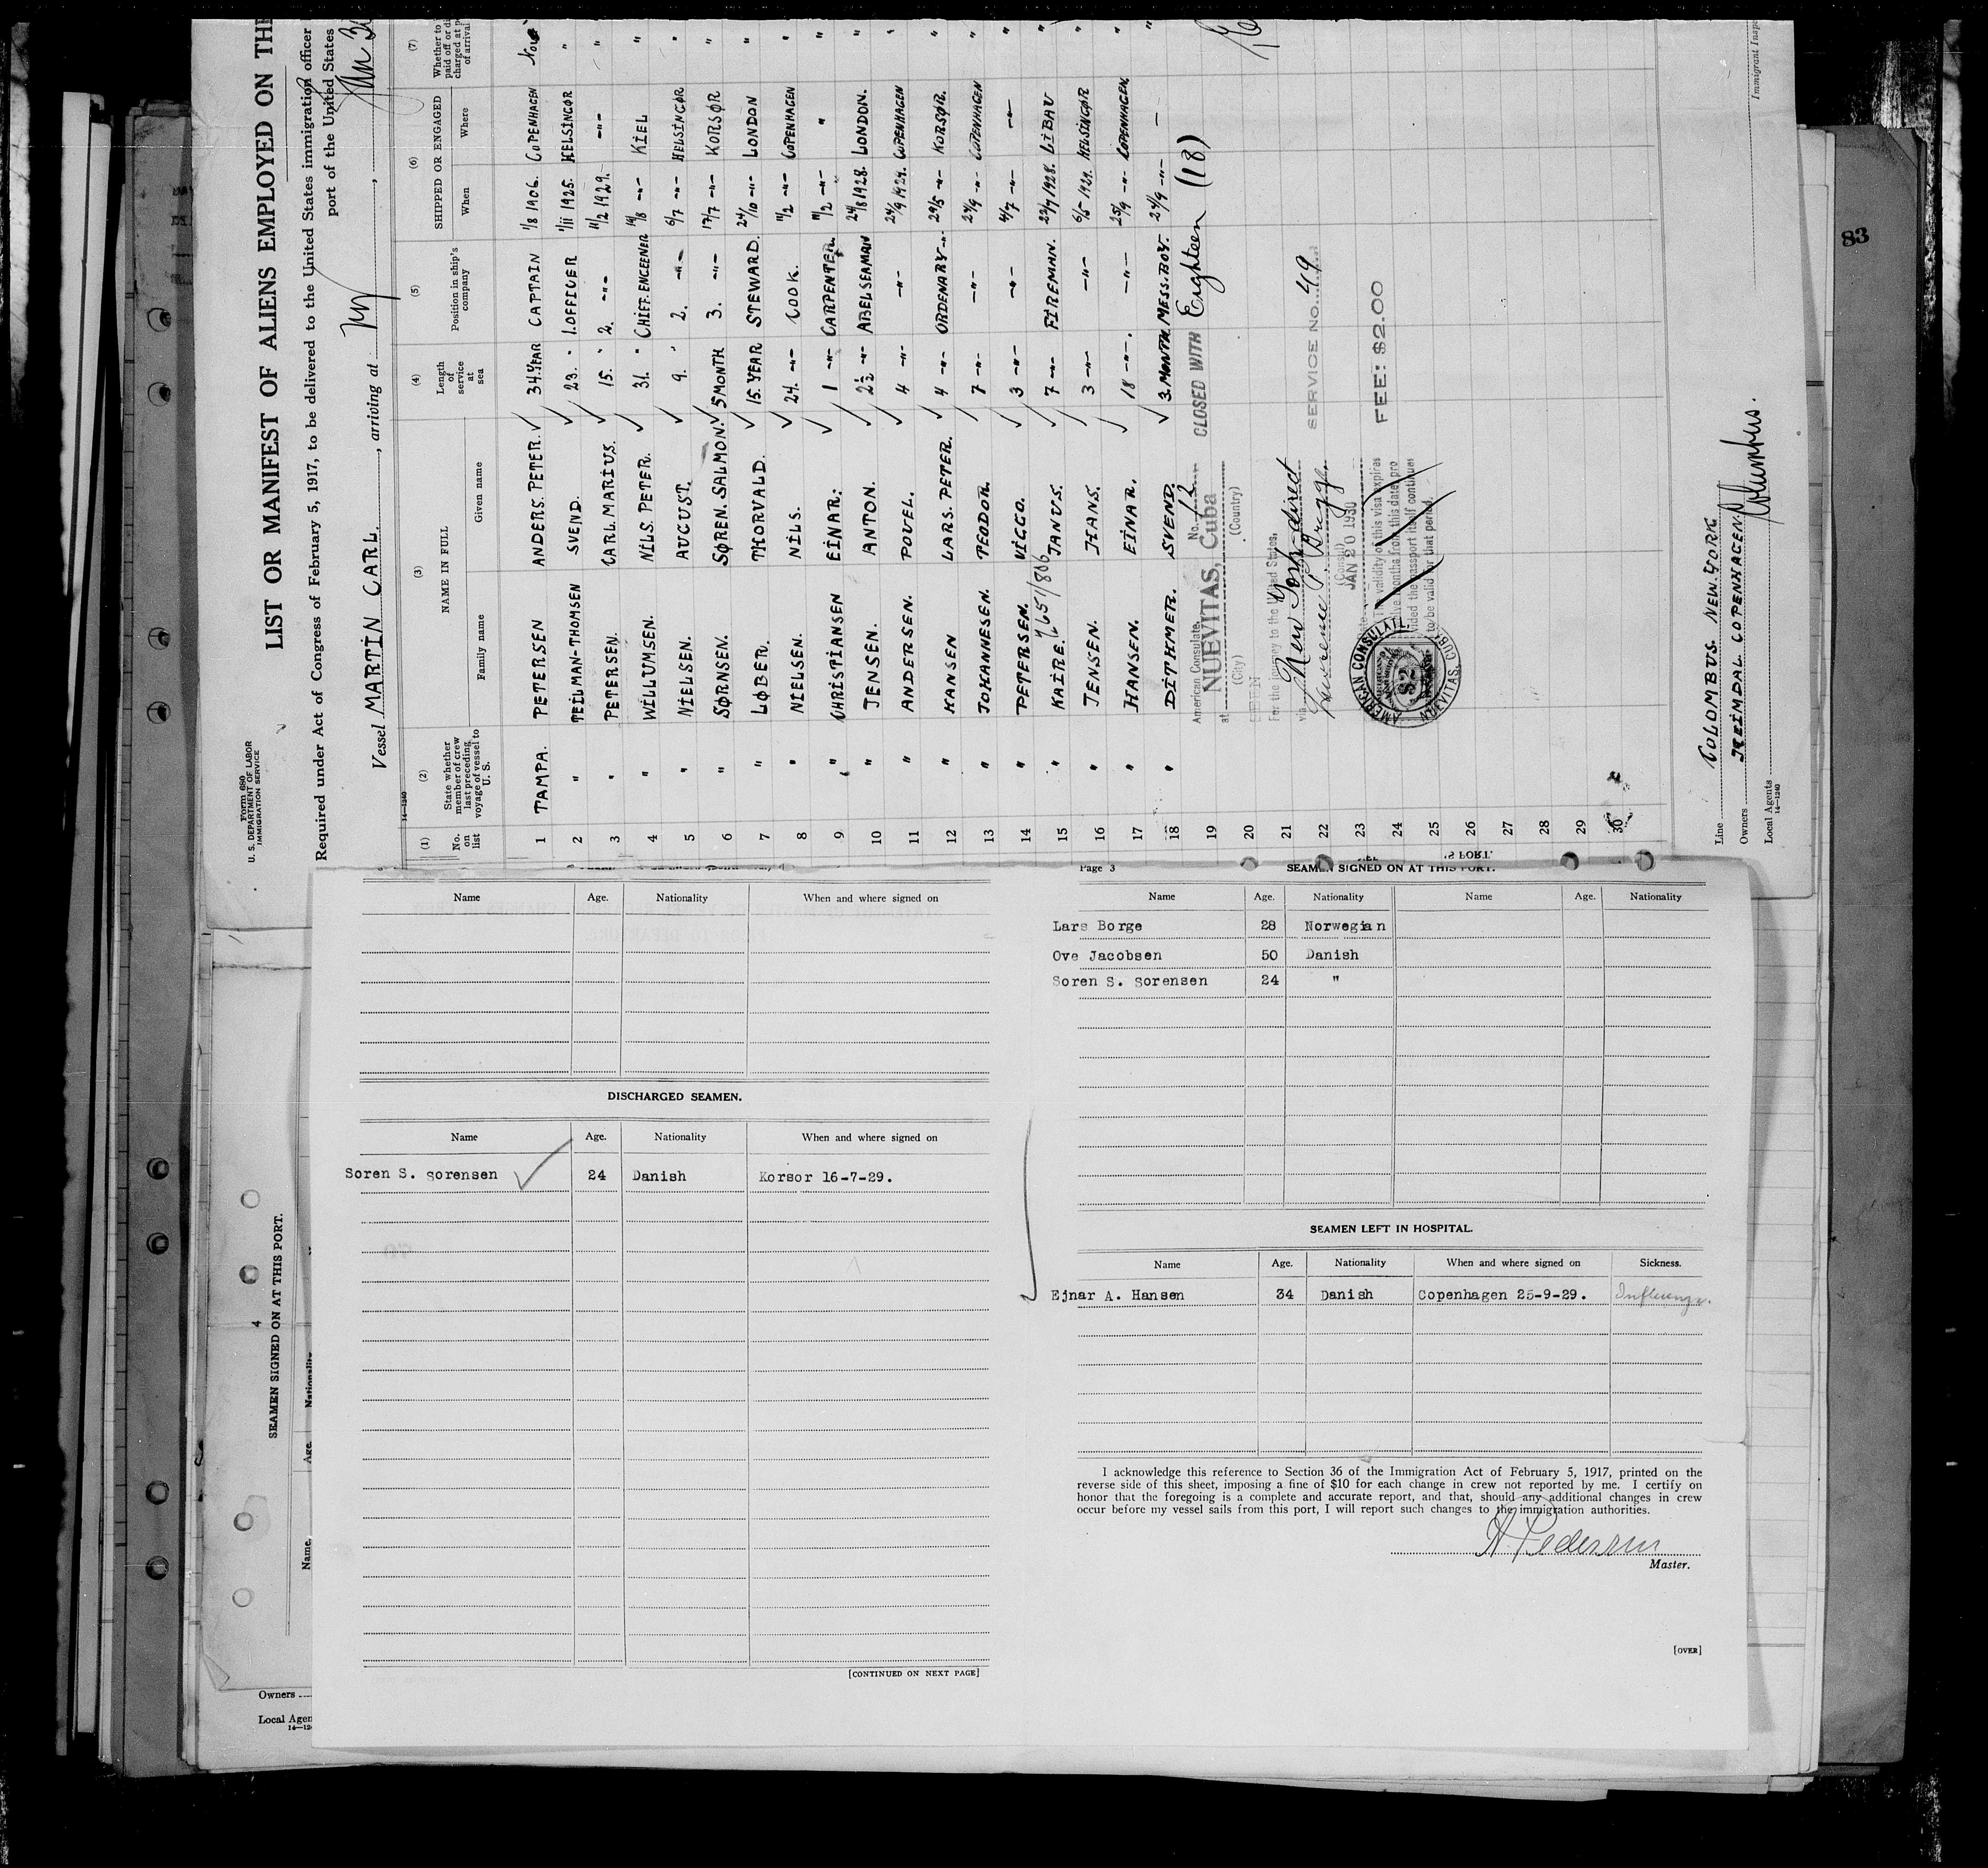 Form 680
U. S. DEPARTMENT OF LABOR
IMMIGRATION SERVICE
LIST OR MANIFEST OF ALIENS EMPLOYED ON THE
Required under Act of Congress of February 5, 1917, to be delivered to the United States immigration officer
port of the United States
Vessel MARTIN CARL. , arriving at NY , Jan
14—1240
(1) (2) (3) (4) (5) (6) (7)
No. on list State whether member of crew last preceding voyage of vessel to U. S. NAME IN FULL Length of service at sea Position in ship's company SHIPPED OR ENGAGED Whether to paid off or di charged at p of arrival
Family name Given name When Where
1 TAMPA. PETERSEN ANDERS. PETER. 34.YEAR CAPTAIN 1/8 1906. COPENHAGEN No
2 " TEILMAN-THOMSEN SVEND. 23. " 1.OFFICER 1/11 1925. HELSINGØR "
3 " PETERSEN. CARL.MARIUS. 15. " 2. -"- 11/2 1929. -"- "
4 " WILLUMSEN. NILS. PETER. 31. " CHIFF.ENGEENER 14/8 -"- KIEL "
5 " NIELSEN. AUGUST. 9. " 2. -"- 6/7 -"- HELSINGØR "
6 " SØRNSEN. SØREN. SALMON. 5 MONTH 3. -"- 17/7 -"- KORSØR "
7 " LØBER. THORVALD. 15. YEAR STEWARD. 24/10 -"- LONDON "
8 " NIELSEN. NILS. 24. -"- COOK. 11/2 -"- COPENHAGEN "
9 " CHRISTIANSEN EINAR. 1 -"- CARPENTER. 11/2 -"- " "
10 " JENSEN. ANTON. 2½ -"- ABELSEAMAN 24/8 1928. LONDON. "
11 " ANDERSEN. POVEL. 4 -"- -"- 24/9 1929. COPENHAGEN "
12 " HANSEN LARS. PETER. 4 -"- ORDENARY -"- 29/5 -"- KORSØR. "
13 " JOHANNESEN. PEODOR. 7 -"- -"- 24/9 -"- COPENHAGEN "
14 " PETERSEN. VIGGO. 3 -"- -"- 4/7 -"- -"- "
15 " KAIRE. JANUS. 7 -"- FIREMAN. 23/7 1928. LIBAU "
16 " JENSEN. HANS. 3 -"- -"- 6/5 1929. HELSINGØR "
17 " HANSEN. EINAR. 18 -"- -"- 25/9 -"- COPENHAGEN. "
18 " DITHMER. SVEND. 3. MONTH. MESS.BOY. 24/9 -"- — "
19
20
21
22
23
24
25
26
27
28
29
30
American Consulate, No. 12 CLOSED WITH Eighteen (18)
at NUEVITAS, Cuba
(City) (Country)
SEEN
For the journey to the United States,
via New York direct
SERVICE NO. 49
(Consul)
Date JAN 20 1930
The validity of this visa expires
twelve months from this date pro
vided the passport itself continues
to be valid for that period.
FEE: $2.00
AMERICAN CONSULATE
NUEVITAS, CUBA
$2
Line COLOMBUS. NEW.YORK
Owners HEIMDAL. COPENHAGEN.
Local Agents Columbus.
14—1240
Immigrant Insp
83
Name Age. Nationality When and where signed on
DISCHARGED SEAMEN.
Name Age. Nationality When and where signed on
Soren S. sorensen 24 Danish Korsor 16-7-29.
[CONTINUED ON NEXT PAGE]
Page 3 SEAMEN SIGNED ON AT THIS PORT.
Name Age. Nationality Name Age. Nationality
Lars Borge 28 Norwegian
Ove Jacobsen 50 Danish
Soren S. sorensen 24 "
SEAMEN LEFT IN HOSPITAL.
Name Age. Nationality When and where signed on Sickness.
Ejnar A. Hansen 34 Danish Copenhagen 25-9-29. Influenza.
I acknowledge this reference to Section 36 of the Immigration Act of February 5, 1917, printed on the
reverse side of this sheet, imposing a fine of $10 for each change in crew not reported by me. I certify on
honor that the foregoing is a complete and accurate report, and that, should any additional changes in crew
occur before my vessel sails from this port, I will report such changes to the immigration authorities.
A. Pedersen
Master.
[OVER]
4
SEAMEN SIGNED ON AT THIS PORT.
Name. Age. Nationality
Owners
Local Agen